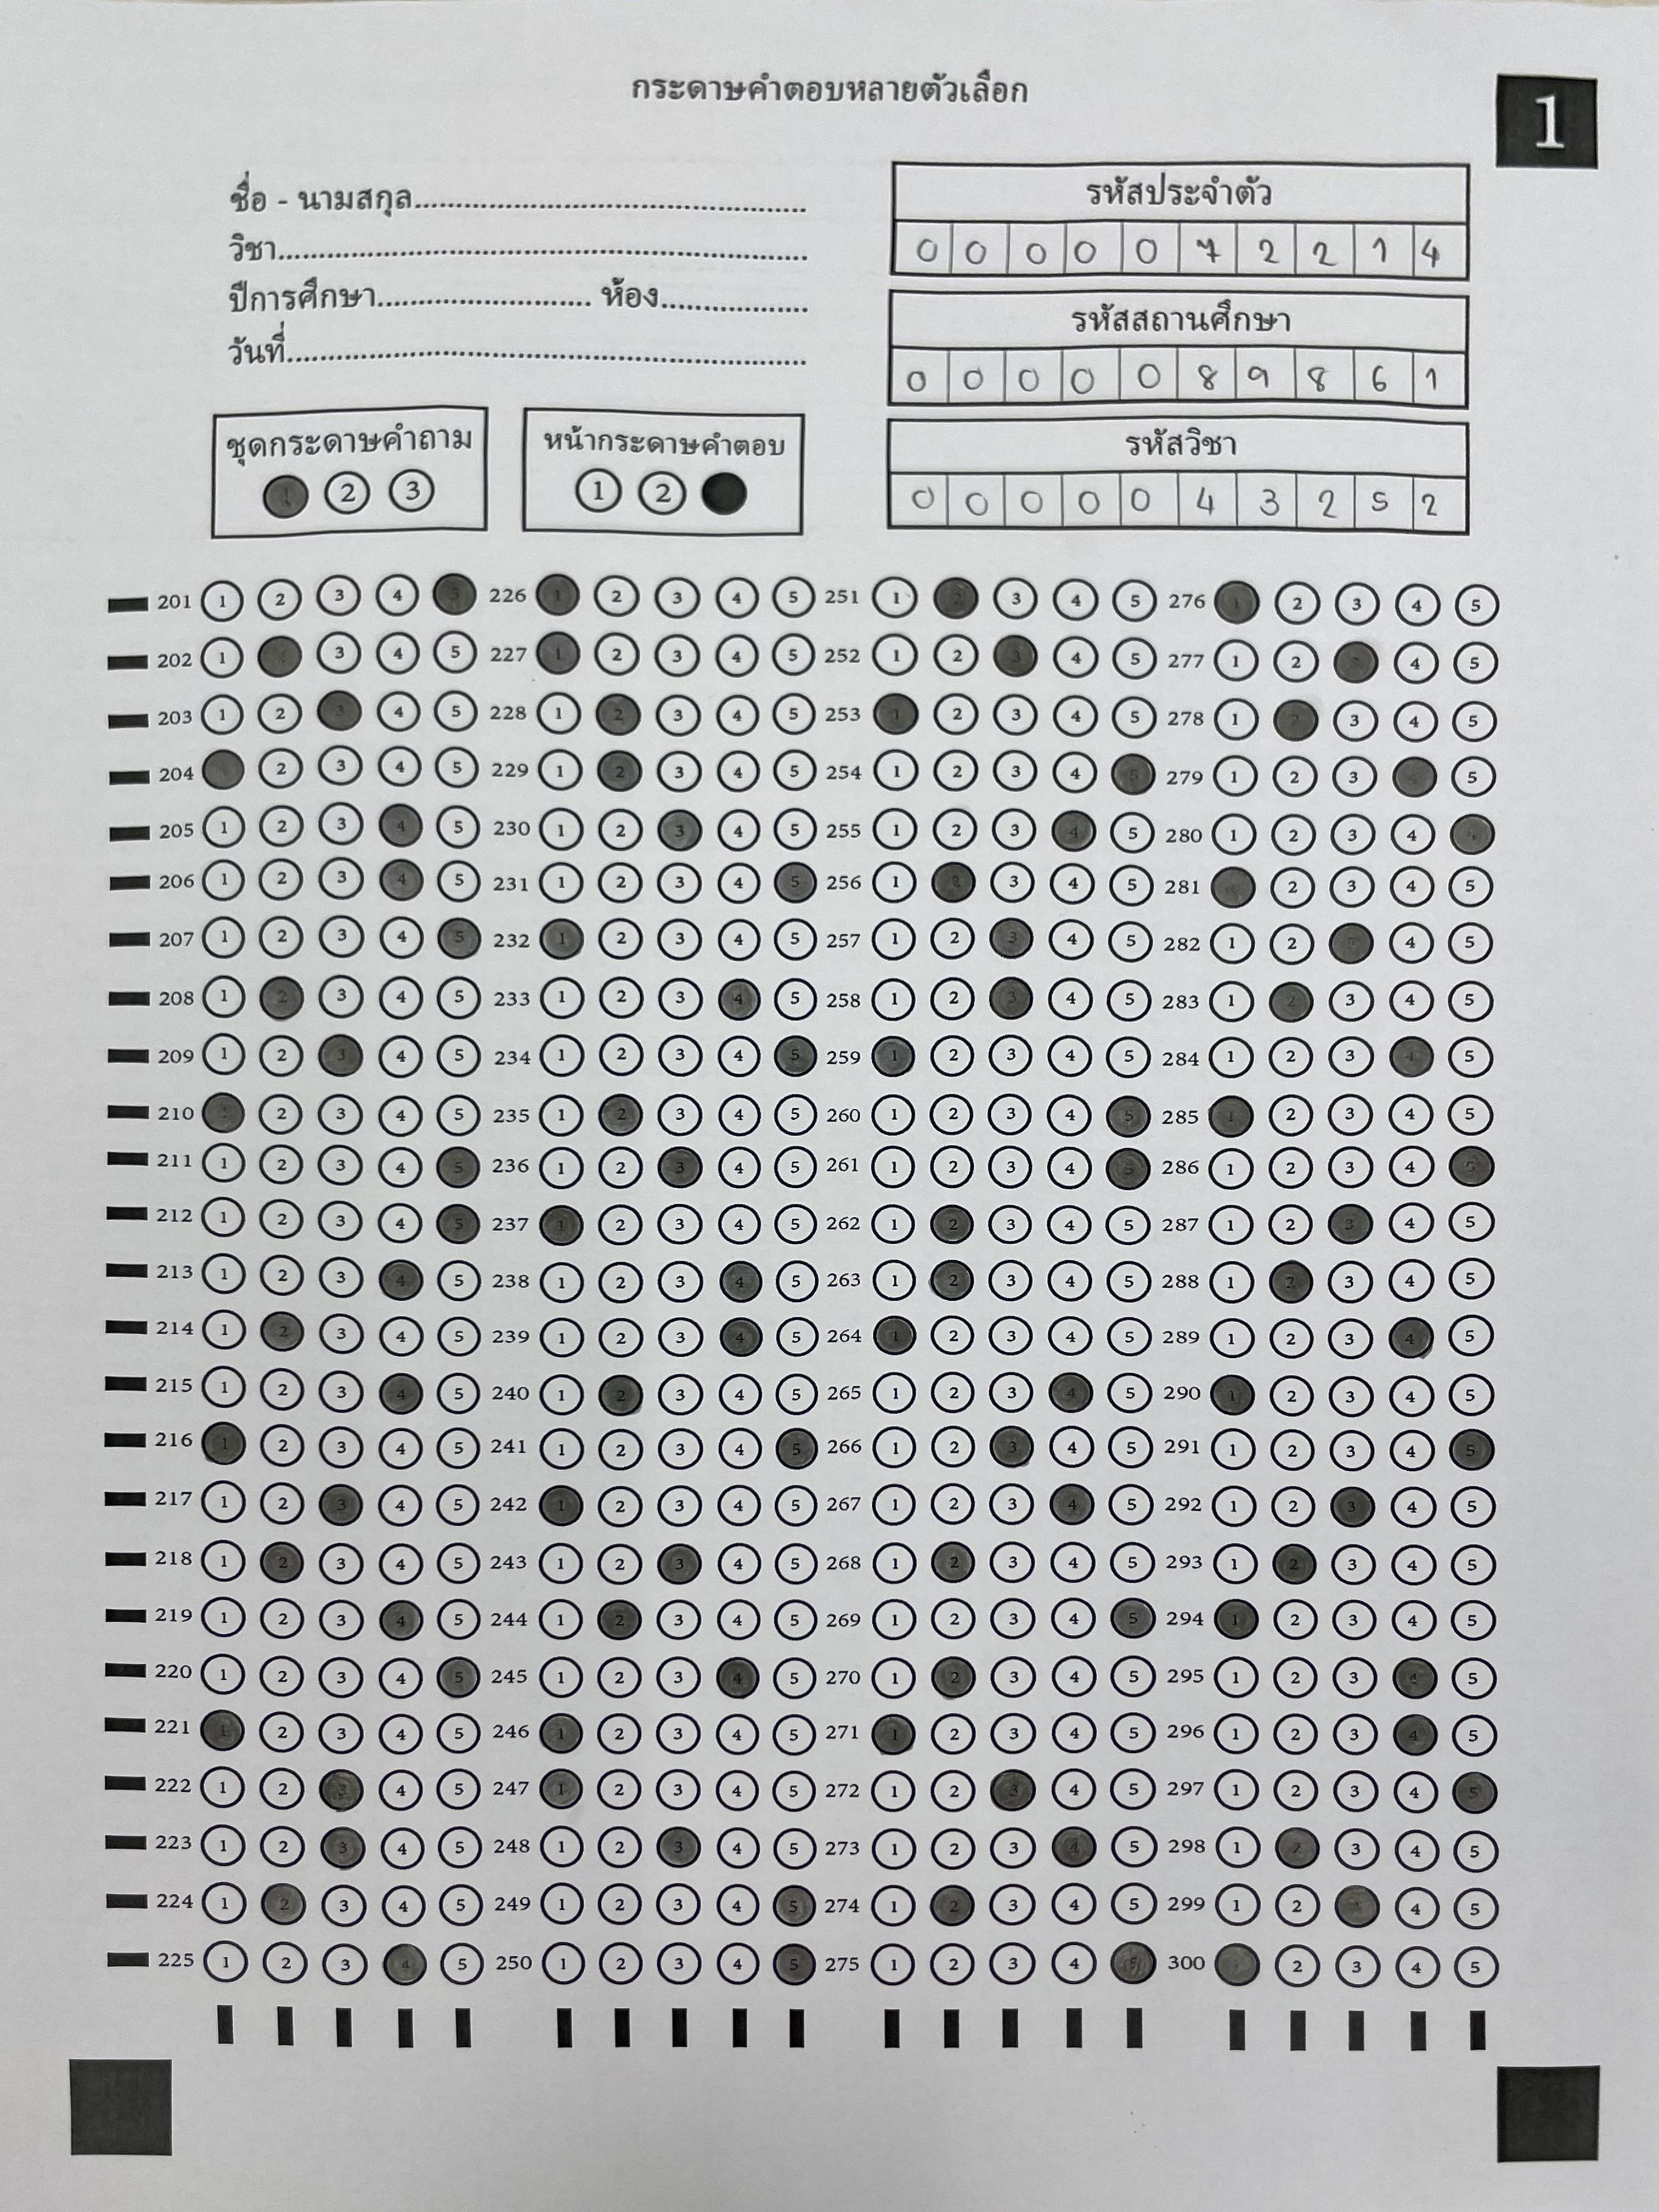 กระดาษคำตอบหลายตัวเลือก
1
ชื่อ - นามสกุล
วิชา
ปีการศึกษา ห้อง
วันที่
รหัสประจำตัว
0 0 0 0 0 7 2 2 1 4
รหัสสถานศึกษา
0 0 0 0 0 8 9 8 6 1
รหัสวิชา
0 0 0 0 0 4 3 2 5 2
ชุดกระดาษคำถาม
1 2 3
หน้ากระดาษคำตอบ
1 2
201 1 2 3 4 5 226 1 2 3 4 5 251 1 2 3 4 5 276 1 2 3 4 5
202 1 2 3 4 5 227 1 2 3 4 5 252 1 2 3 4 5 277 1 2 3 4 5
203 1 2 3 4 5 228 1 2 3 4 5 253 1 2 3 4 5 278 1 2 3 4 5
204 1 2 3 4 5 229 1 2 3 4 5 254 1 2 3 4 5 279 1 2 3 4 5
205 1 2 3 4 5 230 1 2 3 4 5 255 1 2 3 4 5 280 1 2 3 4 5
206 1 2 3 4 5 231 1 2 3 4 5 256 1 2 3 4 5 281 1 2 3 4 5
207 1 2 3 4 5 232 1 2 3 4 5 257 1 2 3 4 5 282 1 2 3 4 5
208 1 2 3 4 5 233 1 2 3 4 5 258 1 2 3 4 5 283 1 2 3 4 5
209 1 2 3 4 5 234 1 2 3 4 5 259 1 2 3 4 5 284 1 2 3 4 5
210 1 2 3 4 5 235 1 2 3 4 5 260 1 2 3 4 5 285 1 2 3 4 5
211 1 2 3 4 5 236 1 2 3 4 5 261 1 2 3 4 5 286 1 2 3 4 5
212 1 2 3 4 5 237 1 2 3 4 5 262 1 2 3 4 5 287 1 2 3 4 5
213 1 2 3 4 5 238 1 2 3 4 5 263 1 2 3 4 5 288 1 2 3 4 5
214 1 2 3 4 5 239 1 2 3 4 5 264 1 2 3 4 5 289 1 2 3 4 5
215 1 2 3 4 5 240 1 2 3 4 5 265 1 2 3 4 5 290 1 2 3 4 5
216 1 2 3 4 5 241 1 2 3 4 5 266 1 2 3 4 5 291 1 2 3 4 5
217 1 2 3 4 5 242 1 2 3 4 5 267 1 2 3 4 5 292 1 2 3 4 5
218 1 2 3 4 5 243 1 2 3 4 5 268 1 2 3 4 5 293 1 2 3 4 5
219 1 2 3 4 5 244 1 2 3 4 5 269 1 2 3 4 5 294 1 2 3 4 5
220 1 2 3 4 5 245 1 2 3 4 5 270 1 2 3 4 5 295 1 2 3 4 5
221 1 2 3 4 5 246 1 2 3 4 5 271 1 2 3 4 5 296 1 2 3 4 5
222 1 2 3 4 5 247 1 2 3 4 5 272 1 2 3 4 5 297 1 2 3 4 5
223 1 2 3 4 5 248 1 2 3 4 5 273 1 2 3 4 5 298 1 2 3 4 5
224 1 2 3 4 5 249 1 2 3 4 5 274 1 2 3 4 5 299 1 2 3 4 5
225 1 2 3 4 5 250 1 2 3 4 5 275 1 2 3 4 5 300 1 2 3 4 5